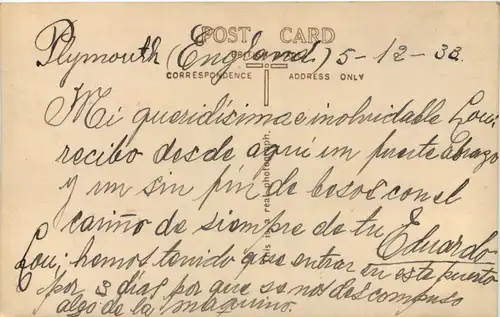 POST CARD
Plymouth (England) 5-12-33.
CORRESPONDENCE ADDRESS ONLY
Mi queridísima e inolvidable Lou:
recibo desde aqui un fuerte abrazo
y un sin fin de besos con el
cariño de siempre de tu Eduardo
Lou; hemos tenido que entrar en este puerto
por 3 días por que se nos descompuso
algo de la maquino.
This is a real photograph.